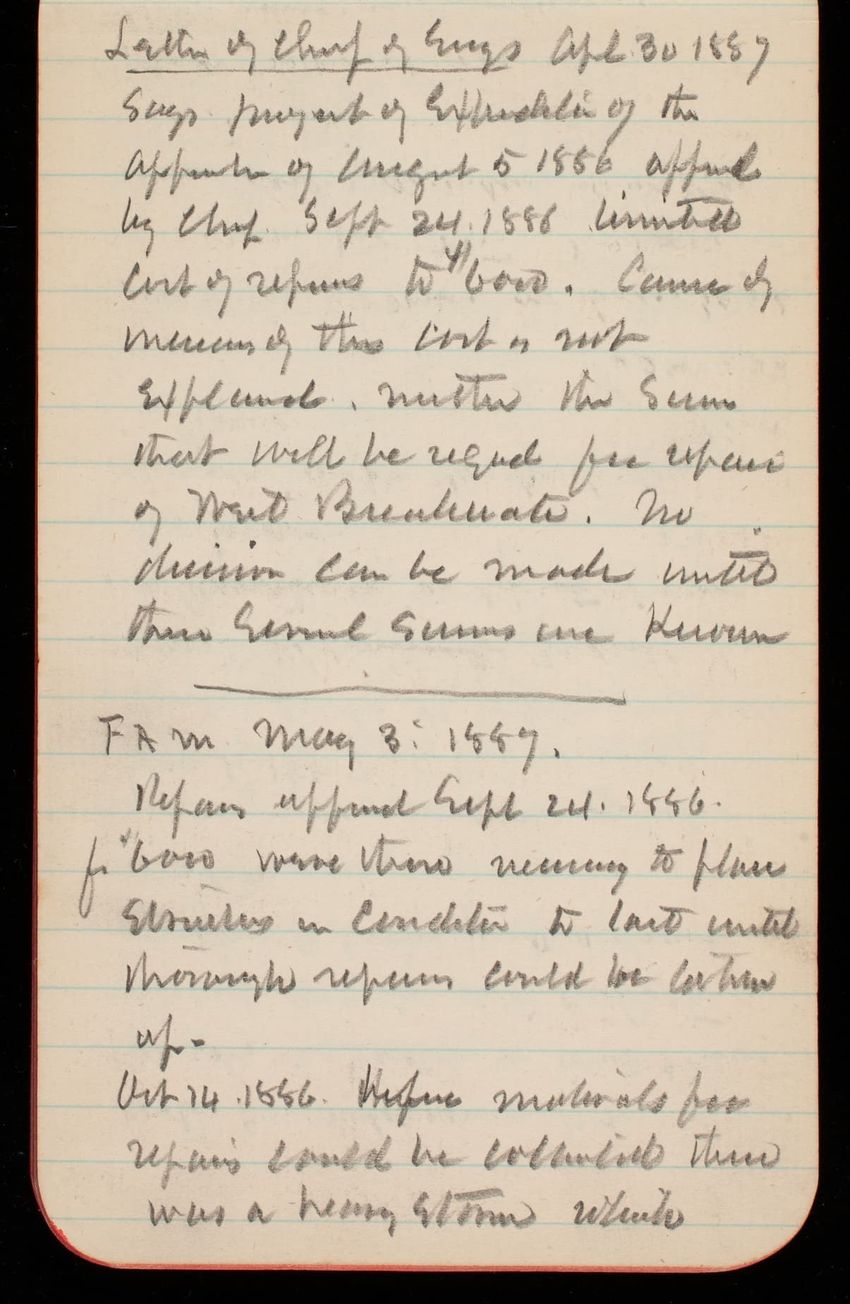 Letter of Chief of Engs Apl 30 1887
Says project of Expenditure of the
Appn of August 5 1886 apprvd
by Chief Sept 24. 1886 limited
Cost of repairs to $6000. Cause of
increase of this cost is not
Explained. neither the Sum
that will be reqd for repair
of West Breakwater. No
decision can be made until
these Several Sums are Known
FAM May 3: 1887.
Repairs apprvd Sept 24. 1886.
for $6000 were those necessary to place
Structure in Condition to last until
thorough repairs could be taken
up-
Oct 14. 1886. Before materials for
repairs could be collected there
was a heavy Storm which